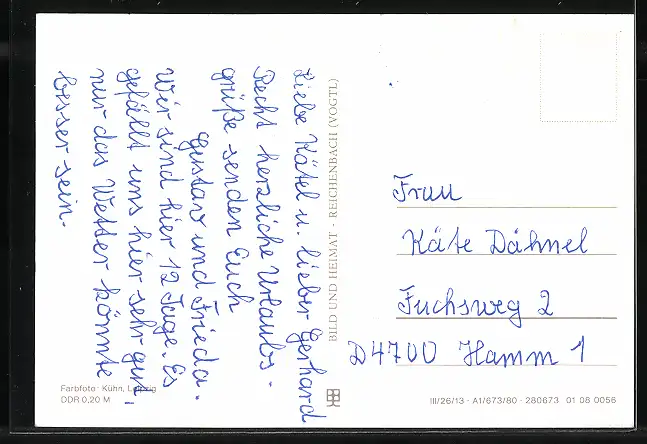 Liebe Kätel u. lieber Gerhard
Recht herzliche Urlaubs-
grüße senden Euch
Gustav und Frieda.
Wir sind hier 12 Tage. Es
gefällt uns hier sehr gut,
nur das Wetter könnte
besser sein.
BILD UND HEIMAT · REICHENBACH (VOGTL)
Frau
Käte Dähnel
Fuchsweg 2
D4700 Hamm 1
Farbfoto: Kühn, Leipzig
DDR 0,20 M
III/26/13 · A1/673/80 · 280673 01 08 0056